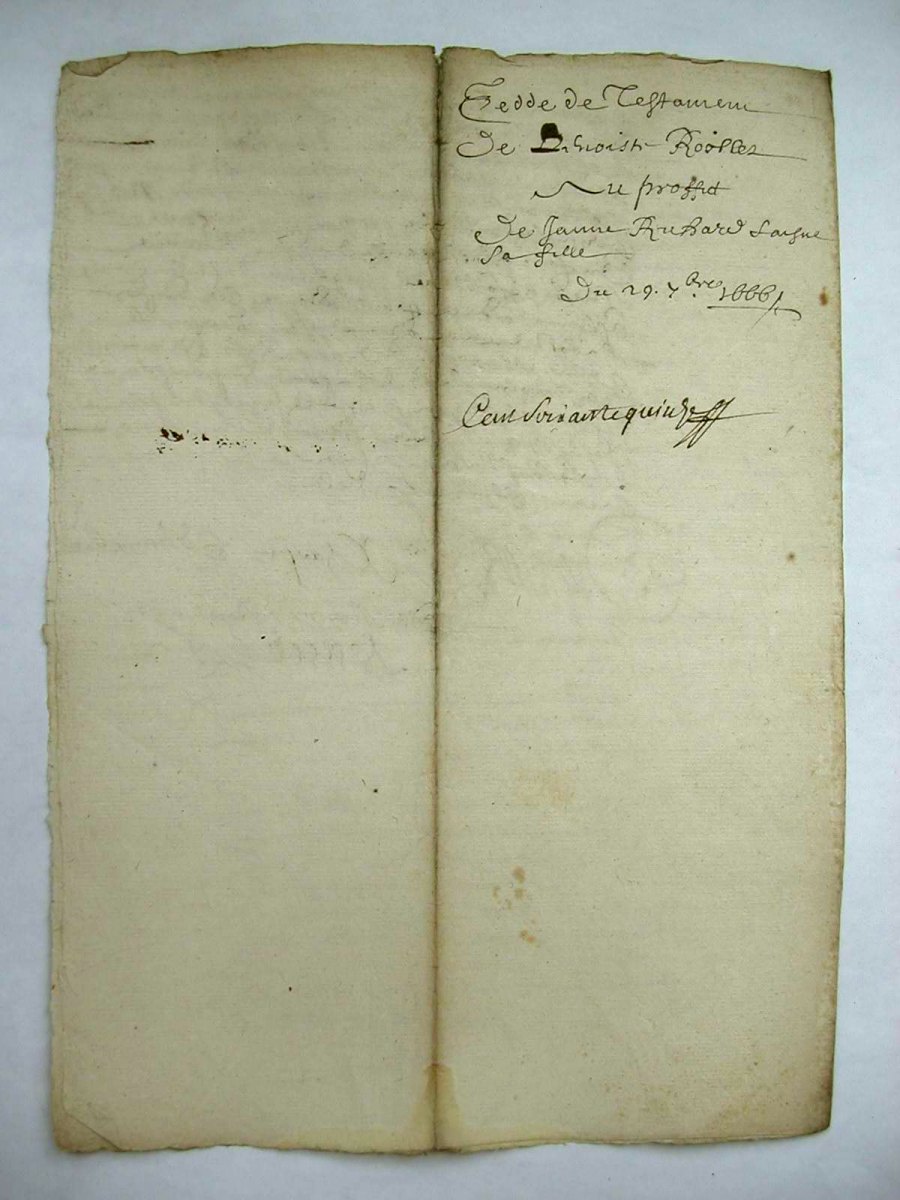 Cedde de Testament
De Benoiste Roollet
Au proffit
De Janne Richard
Sa fille
Du 29. 7bre 1666
Cent Soixante quinze